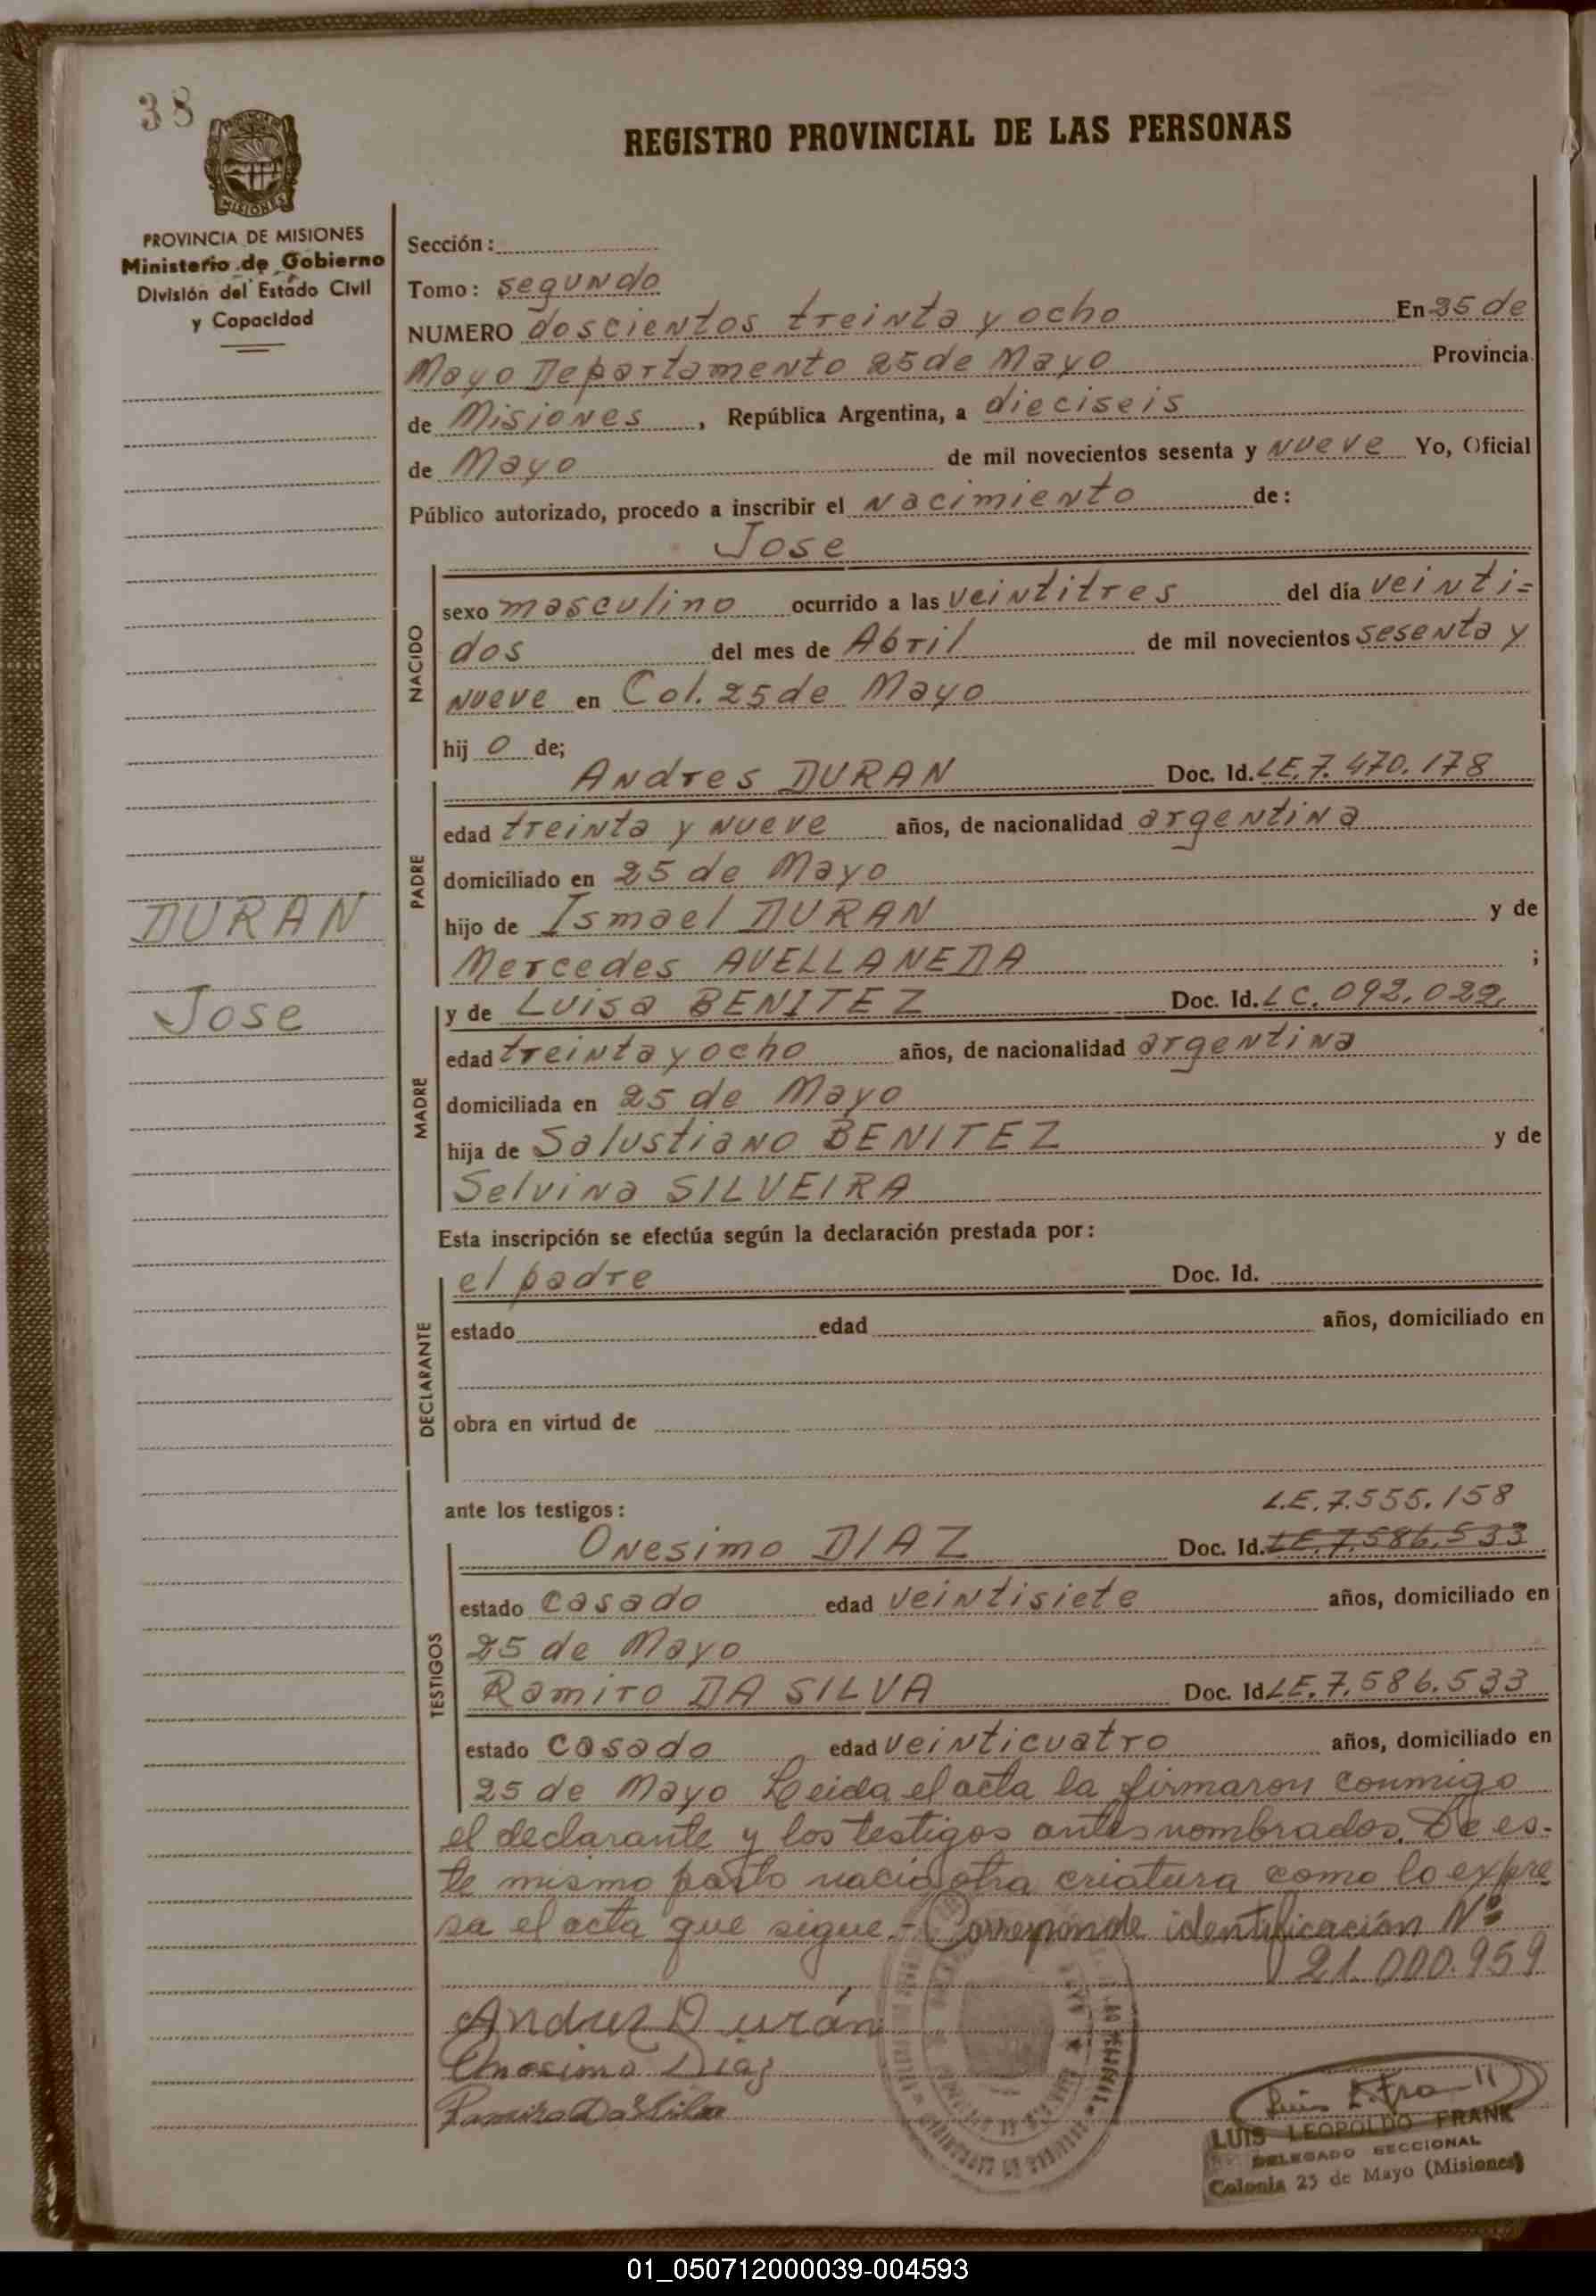 38
REGISTRO PROVINCIAL DE LAS PERSONAS
MISIONES
PROVINCIA DE MISIONES
Ministerio de Gobierno
División del Estado Civil
y Capacidad
Sección:
Tomo: segundo
NUMERO doscientos treinta y ocho En 25 de
Mayo Departamento 25 de Mayo Provincia
de Misiones, República Argentina, a dieciseis
de Mayo de mil novecientos sesenta y nueve Yo, Oficial
Público autorizado, procedo a inscribir el nacimiento de:
Jose
NACIDO
sexo masculino ocurrido a las veintitres del día veinti=
dos del mes de Abril de mil novecientos sesenta y
nueve en Col. 25 de Mayo
hij o de;
Andres DURAN Doc. Id. LE. 7.470.178
PADRE
edad treinta y nueve años, de nacionalidad argentina
domiciliado en 25 de Mayo
hijo de Ismael DURAN y de
Mercedes AVELLANEDA ;
DURAN
Jose
y de Luisa BENITEZ Doc. Id. LC. 092.022.
MADRE
edad treinta y ocho años, de nacionalidad argentina
domiciliada en 25 de Mayo
hija de Salustiano BENITEZ y de
Selvina SILVEIRA
Esta inscripción se efectúa según la declaración prestada por:
el padre Doc. Id.
DECLARANTE
estado edad años, domiciliado en
obra en virtud de
ante los testigos: L.E. 7.555.158
Onesimo DIAZ Doc. Id. LE. 7.586.533
TESTIGOS
estado casado edad veintisiete años, domiciliado en
25 de Mayo
Ramiro DA SILVA Doc. Id LE. 7.586.533
estado casado edad veinticuatro años, domiciliado en
25 de Mayo Leida el acta la firmaron conmigo
el declarante y los testigos antes nombrados. De es-
te mismo parto nació otra criatura como lo expre
sa el acta que sigue.- Corresponde identificación Nº
21.000.959
Andres Durán
Onosimo Diaz
Ramiro Da Silva
LUIS LEOPOLDO FRANK
DELEGADO SECCIONAL
Colonia 25 de Mayo (Misiones)
01_050712000039-004593